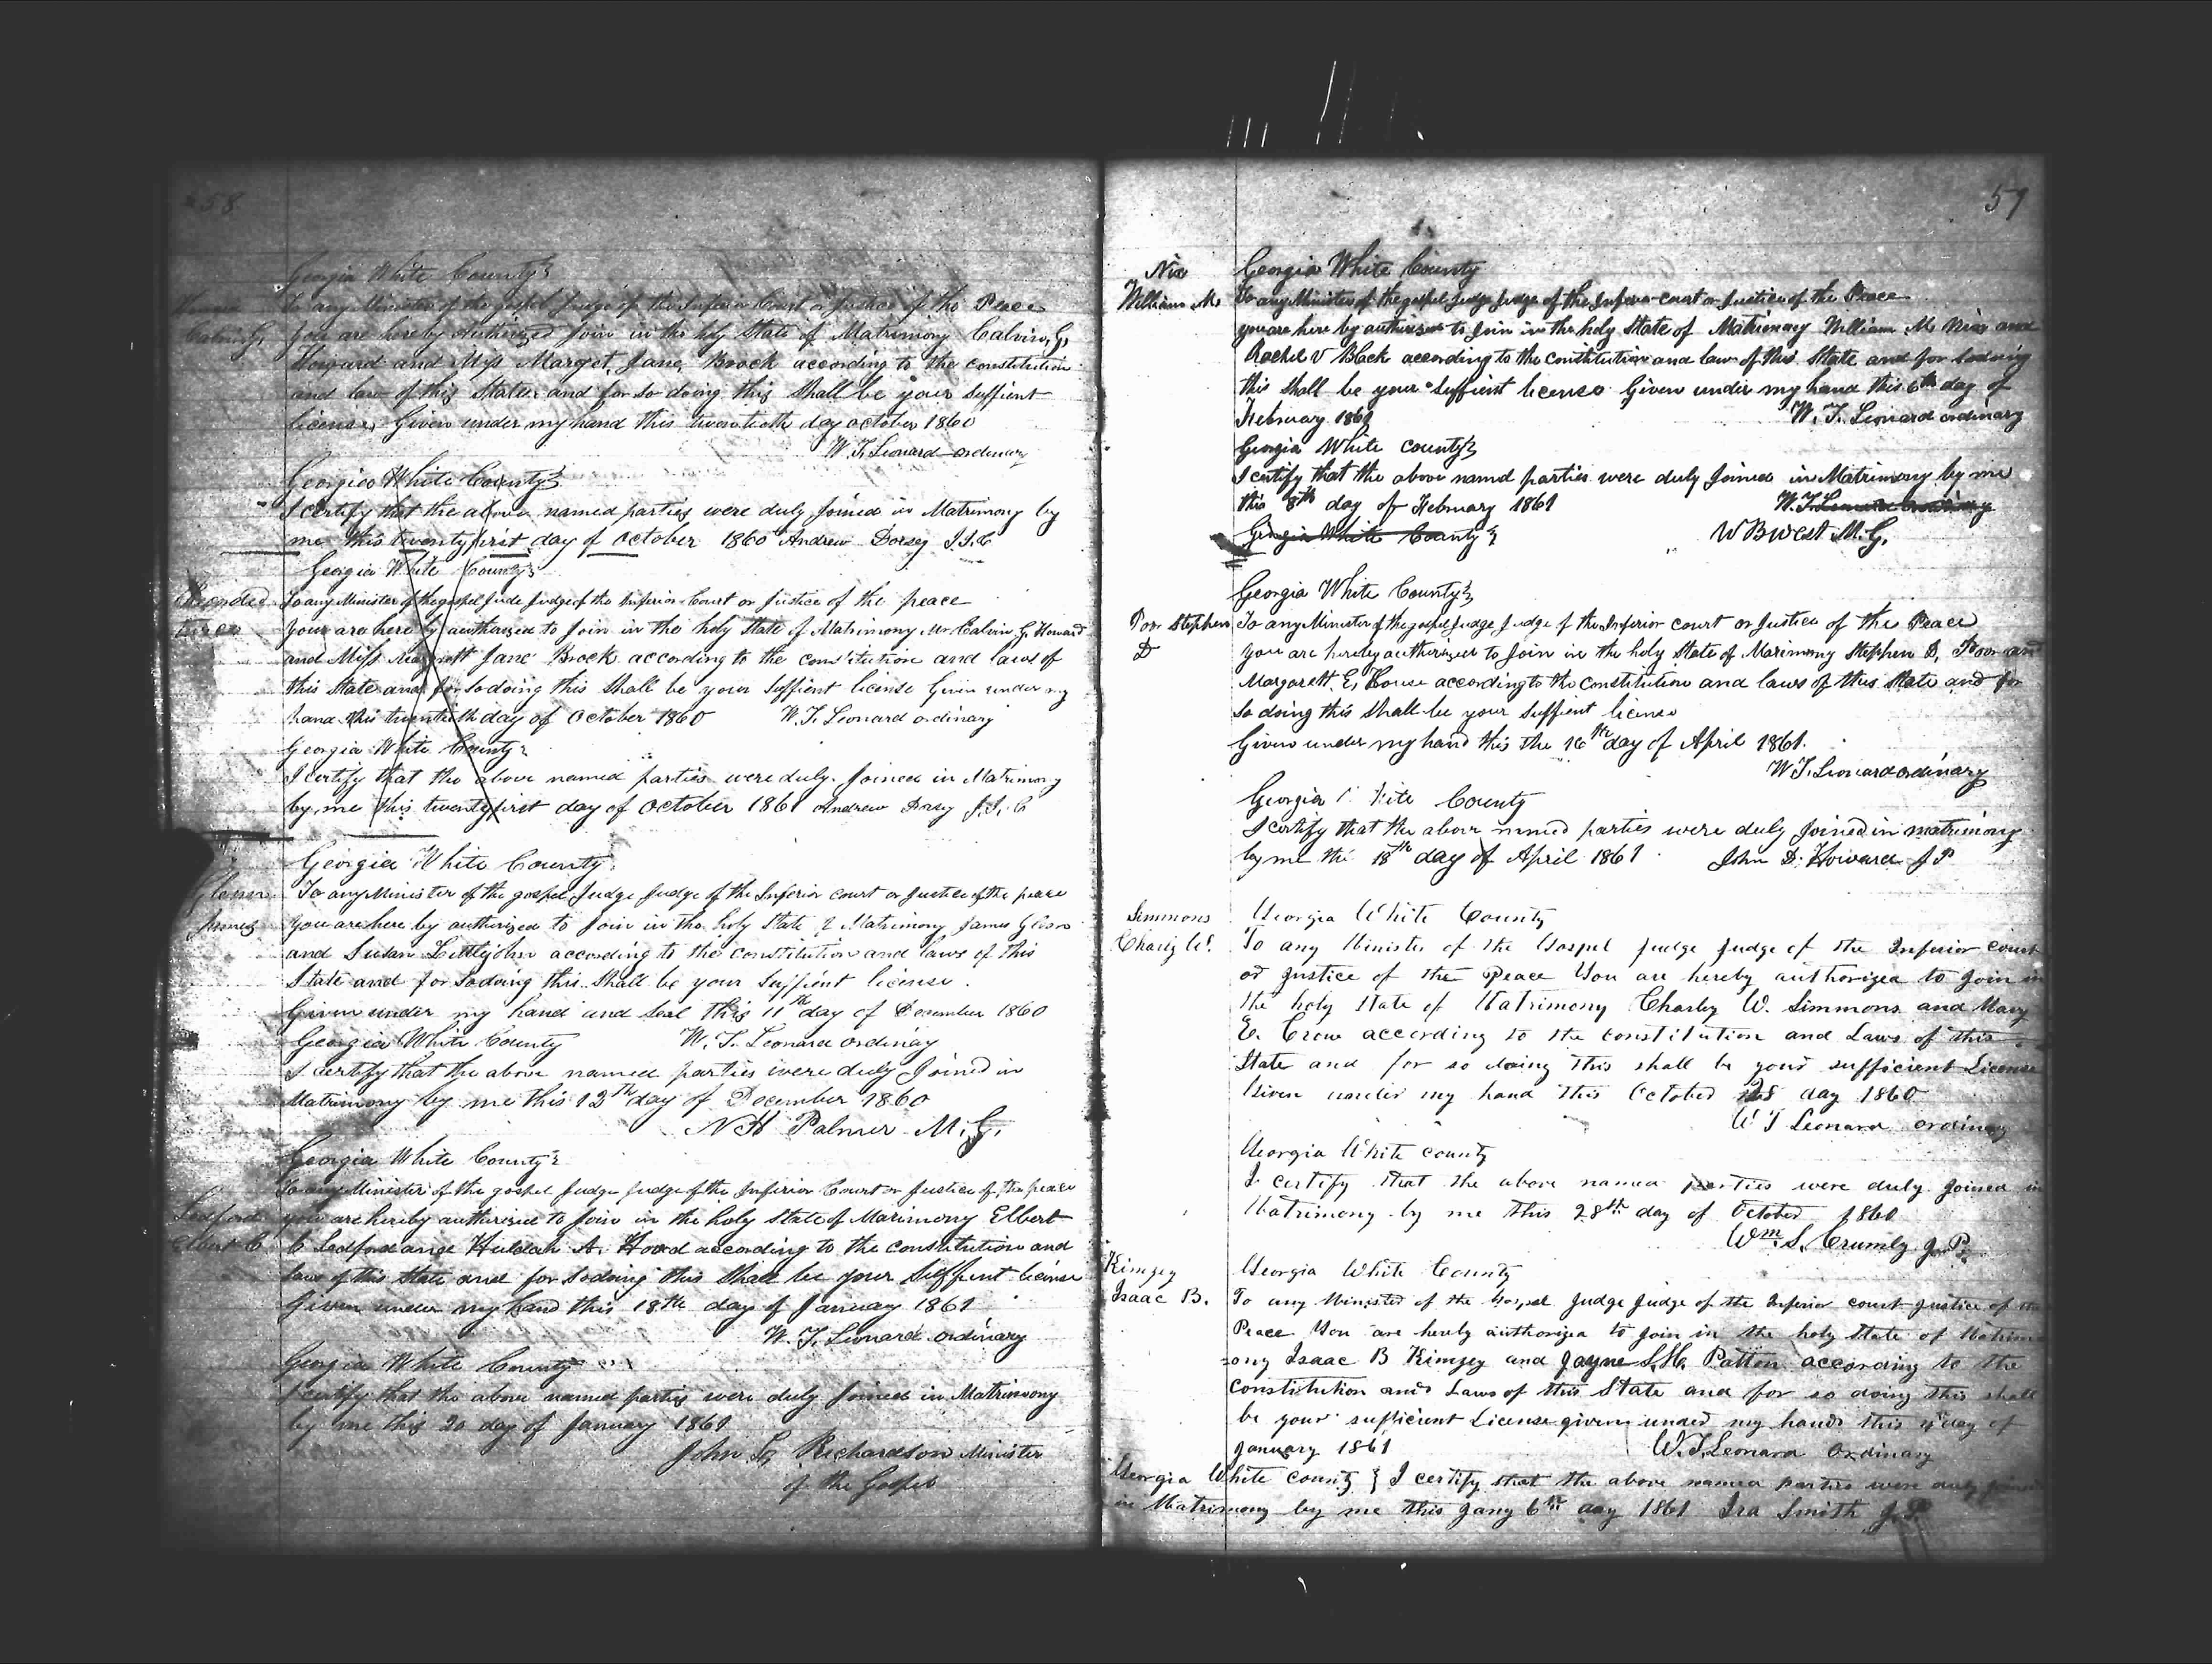 58
Georgia White County
Howard
Calvin G,
To any Minister of the gospel Judge of the Inferior Court or Justice of the Peace
you are hereby Authorized Join in the holy State of Matrimony Calvin, G,
Howard and Miss Marget, Jane, Brock according to the constitution
and law of this State and for so doing this Shall be your suffient
license, Given under my hand this twentieth day october 1860
W. T. Leonard ordinary
Georgia White County
I certify that the above named parties were duly Joined in Matrimony by
me this twenty first day of October 1860 Andrew Dorsey J.I.C
Georgia White County
Recorded
twice
To any Minister of the gospel Jude Judge of the Inferior Court or Justice of the peace
your are here by authorized to Join in the holy State of Matrimony Mr. Calvin G. Howard
and Miss Jane Brock according to the constitution and laws of
this State and for so doing this Shall be your suffient license Given under my
hand this twentieth day of October 1860 W. T. Leonard ordinary
Georgia White County
I certify that the above named parties were duly Joined in Matrimony
by me this twenty first day of October 1861 Andrew Dorsey J.I.C
Georgia White County
Glenn
James
To any Minister of the gospel Judge Judge of the Inferior court or Justice of the peace
you are here by authorized to Join in the holy State of Matrimony James Glenn
and Susan Littlejohn according to the constitution and laws of this
State and for so doing this Shall be your suffient license.
Given under my hand and seal this 11th day of December 1860
Georgia White County W. T. Leonard ordinay
I certify that the above named parties were duly Joined in
Matrimony by me this 12th day of December 1860
N H Palmer M. G.
Georgia White County
Ledford
Elbert C
To any Minister of the gospel Judge Judge of the Inferior Court or Justice of the peace
you are hereby authorized to Join in the holy State of Marimony Elbert
C Ledford and Huldah A. Hood according to the constitution and
laws of this State and for so doing this Shall be your suffient license
Given under my hand this 18th day of January 1861
W. T. Leonard ordinary
Georgia White County
I certify that the above named partis were duly Joined in Matrimony
by me this 20 day of January 1861
John L, Richardson Minister
of the Gospel
59
Nix
William M.
Georgia White County
To any Minister of the gospel Judge Judge of the Inferior court or Justice of the Peace
you are here by authorized to Join in the holy State of Matrimony William M. Nix and
Rachel V Black according to the constitution and law of this State and for so doing
this Shall be your Suffient license Given under my hand this 6th day of
February 1861 W. T. Leonard ordinary
Georgia White County
I certify that the above namd parties were duly Joined in Matrimony by me
this 8th day of February 1861 W. T. Leonard ordinary
Georgia White County W B West M. G.
Georgia White County
Stephen
D
To any Minister of the gospel Judge Judge of the Inferior court or Justice of the Peace
you are hereby authorized to Join in the holy State of Marimony Stephen D, and
Margarett. E, House according to the constitution and laws of this State and for
So doing this shall be your suffient license
Given under my hand this the 16th day of April 1861.
W. T. Leonard ordinary
Georgia County
I certify that the above named parties were duly Joined in matrimony
by me the 18th day of April 1861 John D. Howard J P
Simmons
Charly W.
Georgia White County
To any Minister of the Gospel Judge Judge of the Inferior court
or Justice of the Peace You are hereby authorized to Join in
the holy State of Matrimony Charly W. Simmons and Mary
E. Crow according to the constitution and Laws of this
State and for so doing this shall be your sufficient License
Given under my hand this October 25 day 1860
W T Leonard ordinary
Georgia White county
I certify that the above named parties were duly Joined in
Matrimony by me this 28th day of October 1860
Wm. S. Crumly J. P.
Kimzey
Isaac B.
Georgia White County
To any Minister of the Gospel Judge Judge of the Inferior court Justice of the
Peace You are hereby authorized to Join in the holy State of Matrim
=ony Isaac B Kimzey and Jayne S. H. Patton according to the
Constitution and Laws of this State and for so doing this shall
be your sufficient License given under my hand this day of
January 1861 W. T. Leonard Ordinary
Georgia White county } I certify that the above named parties were duly
in Matrimony by me this Jany 6th day 1861 Ira Smith J. P.